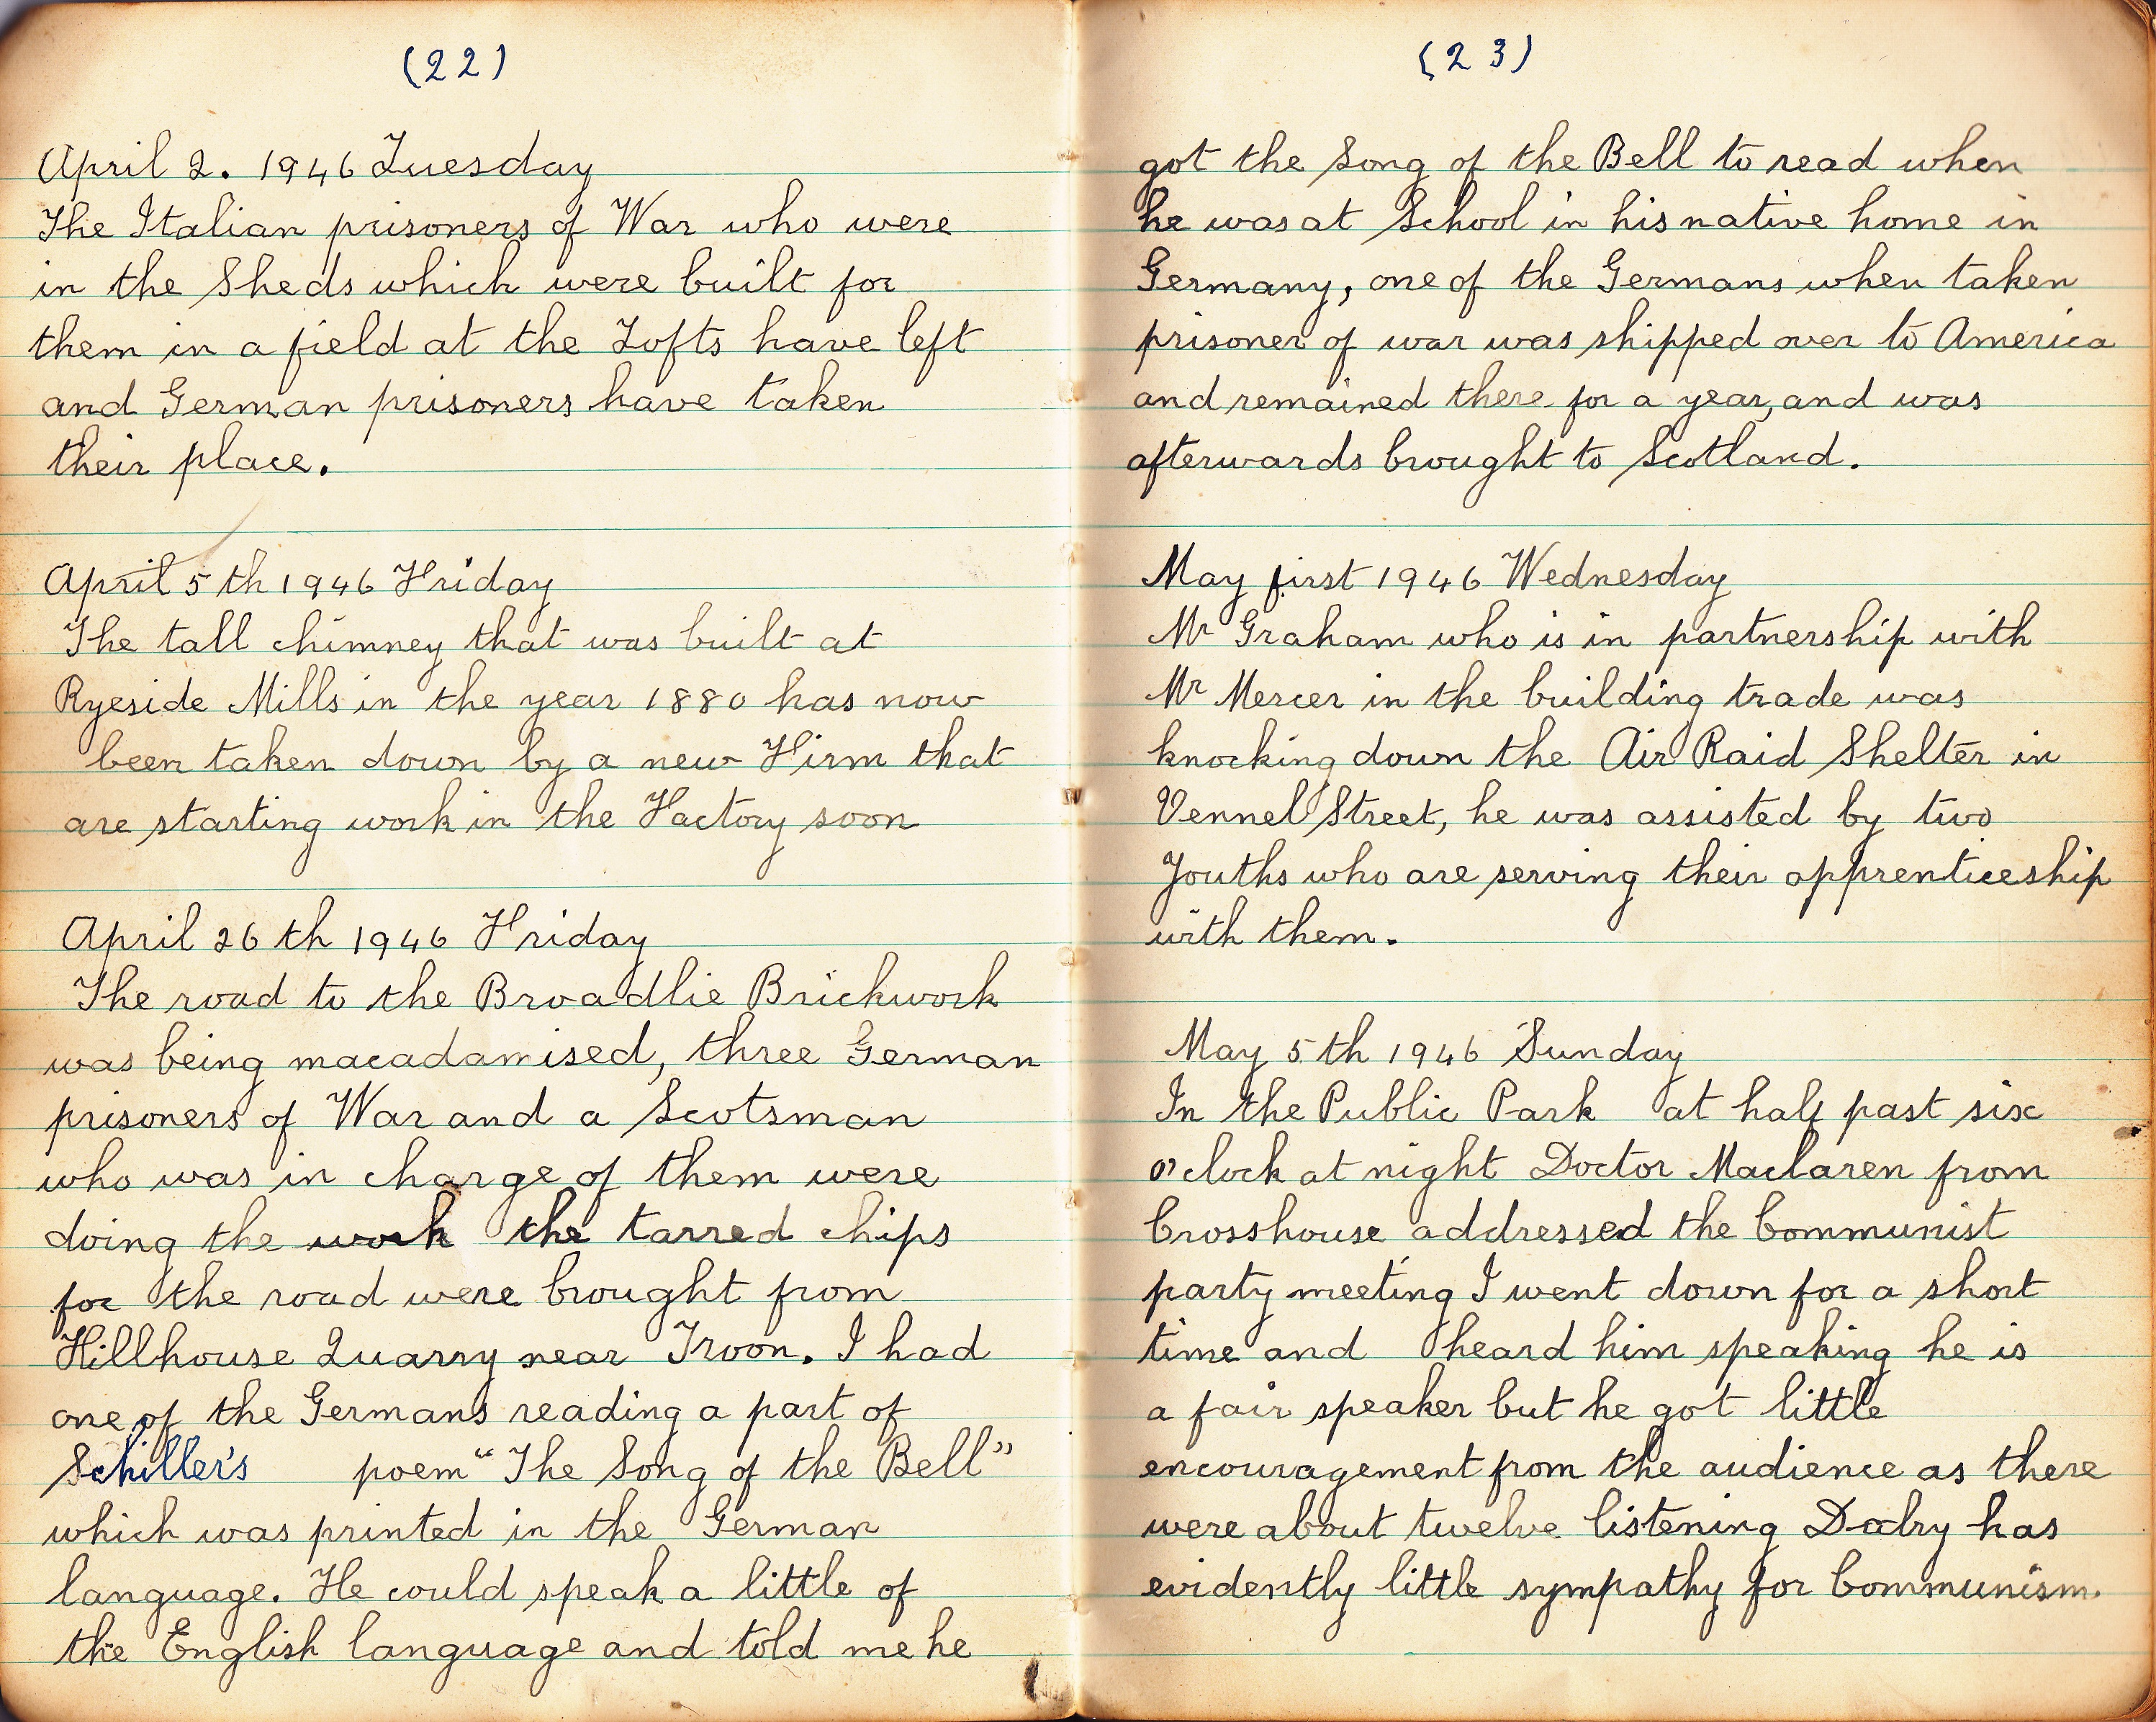 (22)
April 2. 1946 Tuesday
The Italian prisoners of War who were
in the Sheds which were built for
them in a field at the Lofts have left
and German prisoners have taken
their place.
April 5th 1946 Friday
The tall chimney that was built at
Ryeside Mills in the year 1880 has now
been taken down by a new Firm that
are starting work in the Factory soon
April 26th 1946 Friday
The road to the Broadlie Brickwork
was being macadamised, three German
prisoners of War and a Scotsman
who was in charge of them were
doing the work the tarred chips
for the road were brought from
Hillhouse Quarry near Troon. I had
one of the Germans reading a part of
Schiller's poem "The Song of the Bell"
which was printed in the German
language. He could speak a little of
the English language and told me he
(23)
got the Song of the Bell to read when
he was at School in his native home in
Germany, one of the Germans when taken
prisoner of war was shipped over to America
and remained there for a year, and was
afterwards brought to Scotland.
May first 1946 Wednesday
Mr Graham who is in partnership with
Mr Mercer in the building trade was
knocking down the Air Raid Shelter in
Vennel Street, he was assisted by two
Youths who are serving their apprenticeship
with them.
May 5th 1946 Sunday
In the Public Park at half past six
o'clock at night Doctor Maclaren from
Crosshouse addressed the Communist
party meeting I went down for a short
time and heard him speaking he is
a fair speaker but he got little
encouragement from the audience as there
were about twelve listening Dalry has
evidently little sympathy for Communism.